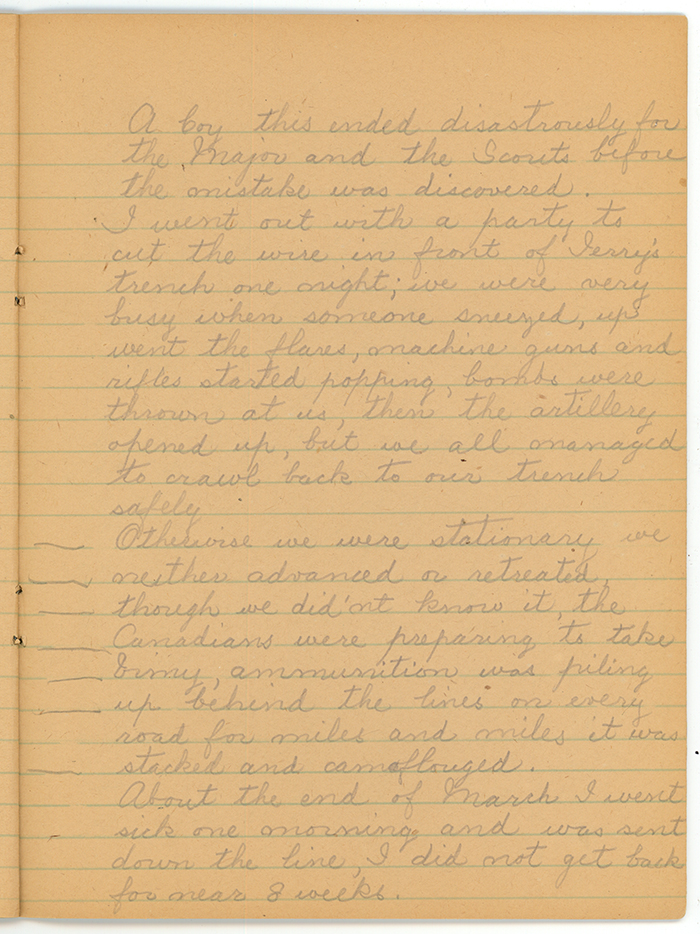 A boy this ended disastrously for
the Major and the Scouts before
the mistake was discovered.
I went out with a party to
cut the wire in front of Jerry's
trench one night; we were very
busy when someone sneezed, up
went the flares, machine guns and
rifles started popping, bombs were
thrown at us, then the artillery
opened up, but we all managed
to crawl back to our trench
safely
Otherwise we were stationary we
neither advanced or retreated,
though we did'nt know it, the
Canadians were preparing to take
Vimy, ammunition was piling
up behind the lines on every
road for miles and miles it was
stacked and camoflouged.
About the end of March I went
sick one morning and was sent
down the line, I did not get back
for near 8 weeks.